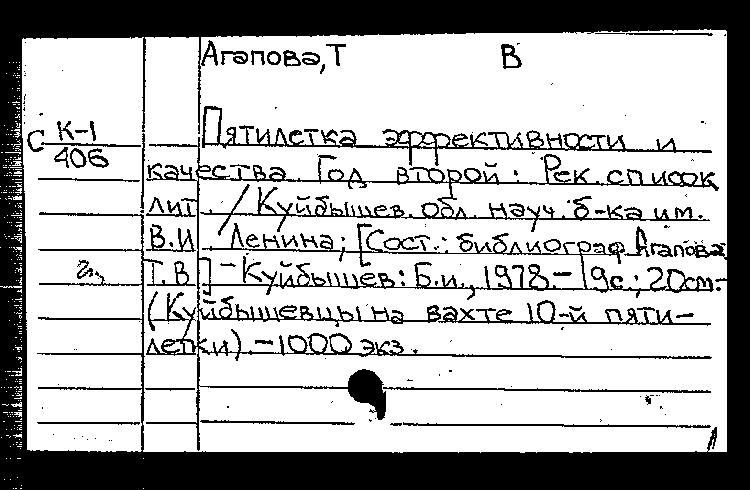 Агапова, Т В
С К-1
406
Пятилетка эффективности и
качества. Год второй: Рек. список
лит. / Куйбышев. обл. науч. б-ка им.
В.И. Ленина; [Сост.: библиограф Агапова
Т.В.] - Куйбышев: Б.и., 1978. - 19с.; 20см.-
(Куйбышевцы на вахте 10-й пяти-
летки). - 1000 экз.